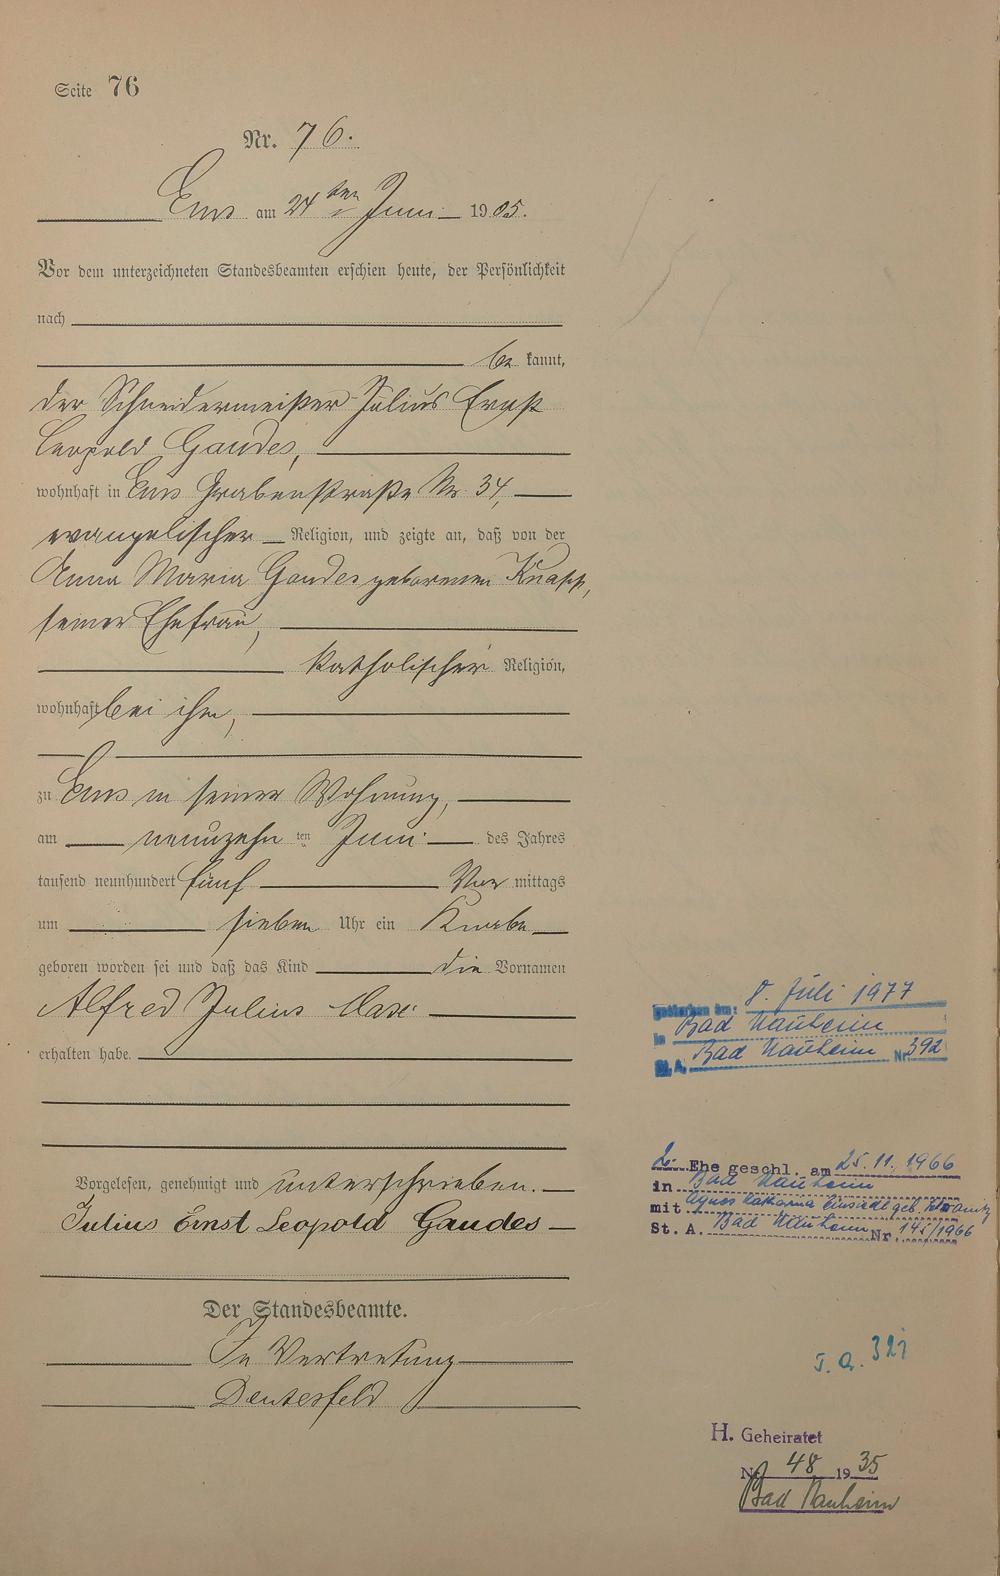 Seite 76
Nr. 76.
Ems am 24ten Juni 1905.
Vor dem unterzeichneten Standesbeamten erschien heute, der Persönlichkeit
nach
be kannt,
der Schneidermeister Julius Ernst
Leopold Gandes,
wohnhaft in Ems Grabenstraße Nr. 34,
evangelischer Religion, und zeigte an, daß von der
Anna Maria Gandes geborenen Knapp,
seiner Ehefrau,
katholischer Religion,
wohnhaft bei ihm,
zu Ems in seiner Wohnung,
am neunzehn ten Juni des Jahres
tausend neunhundert fünf Vor mittags
um sieben Uhr ein Knabe
geboren worden sei und daß das Kind die Vornamen
Alfred Julius Max
erhalten habe.
Vorgelesen, genehmigt und unterschrieben.
Julius Ernst Leopold Gandes
Der Standesbeamte.
In Vertretung
gestorben am: 8. Juli 1977
in Bad Nauheim
St. A. Bad Nauheim Nr. 392
2. Ehe geschl. am 25.11.1966
in Bad Nauheim
mit Agnes Katharina geb.
St. A. Bad Nauheim Nr. 145/1966
321
H. Geheiratet
Nr. 48 1935
Bad Nauheim